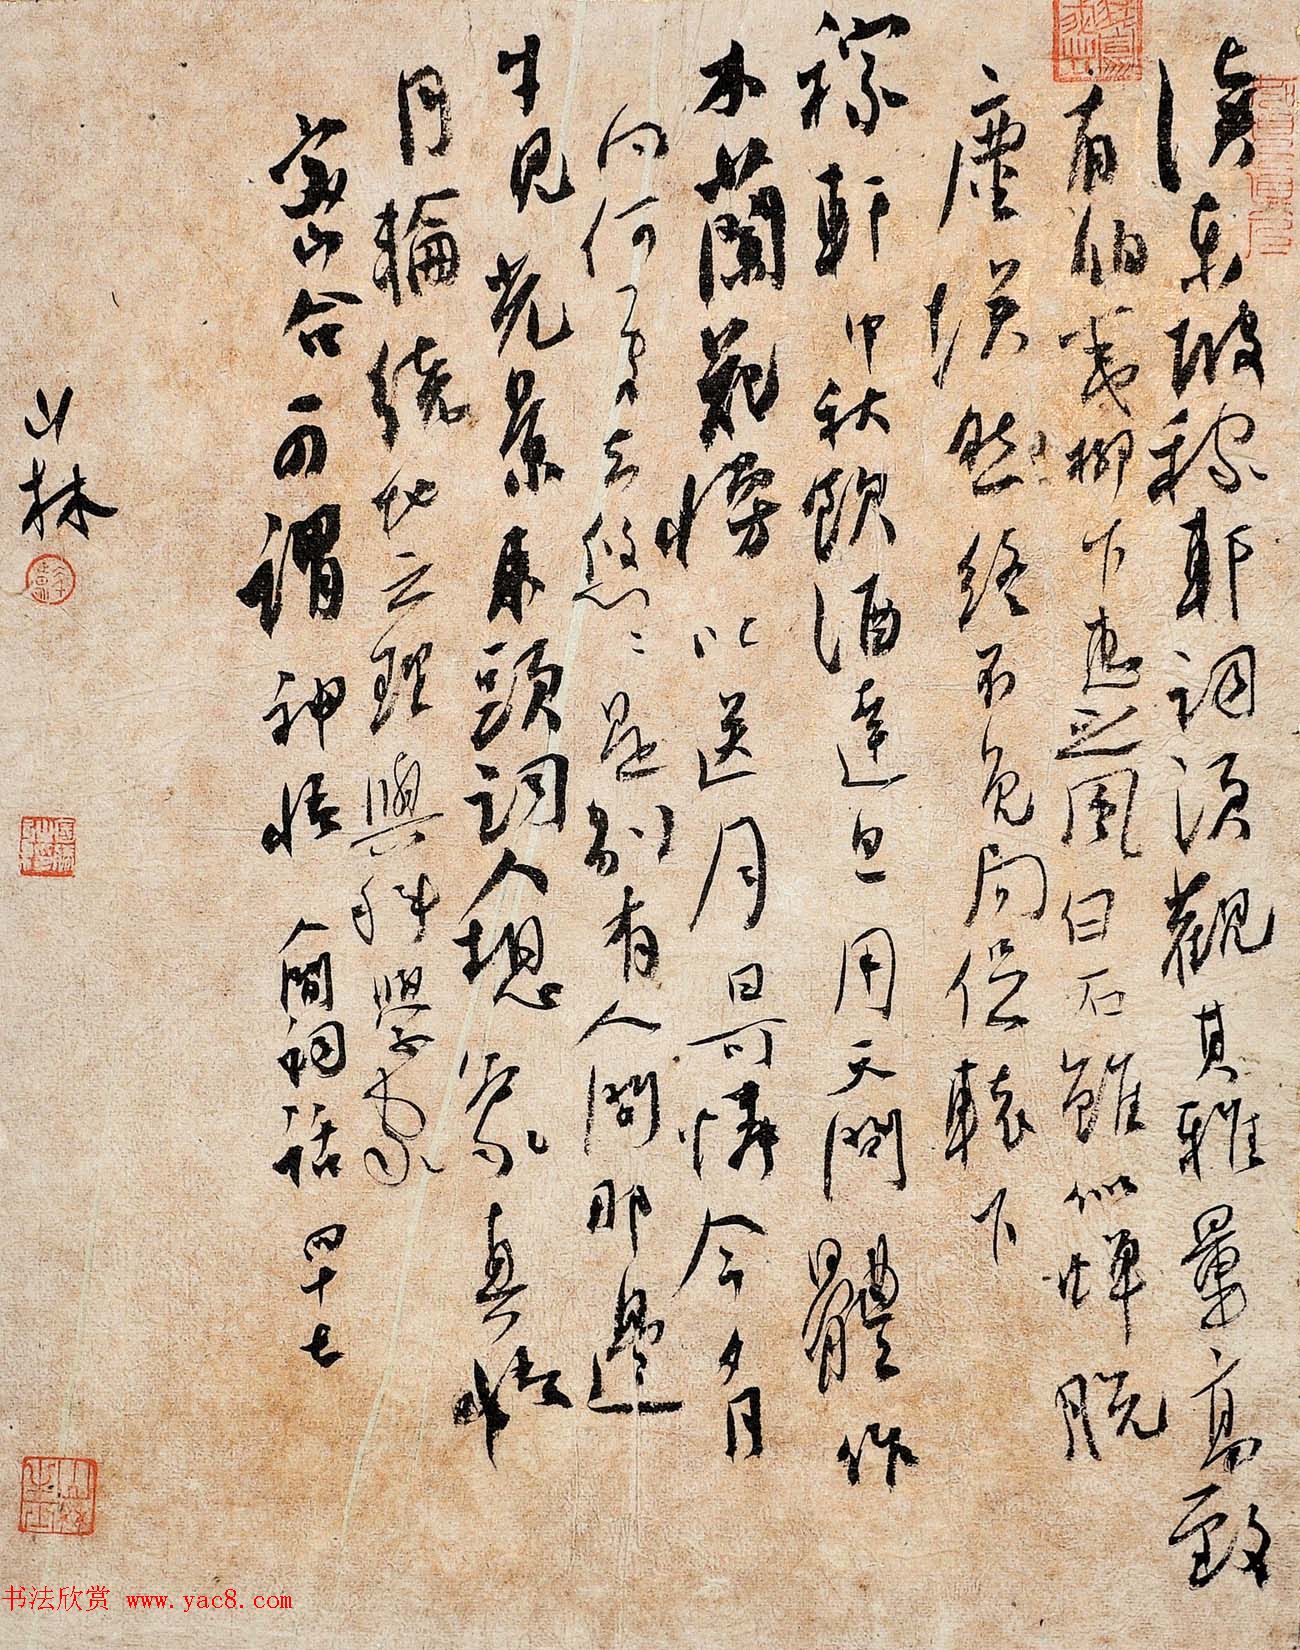 讀東坡稼軒詞須觀其雅量高致
有伯夷柳下惠之風白石雖似蟬脫
塵埃然終不免局促轅下
稼軒中秋飲酒達旦用天問體作
木蘭花慢以送月曰可憐今夕月
向何處去悠悠是別有人間那邊
才見光景東頭詞人想象直悟
月輪繞地之理與科學家
密合可謂神悟 人間詞話 四十七
山林
书法欣赏 www.yac8.com